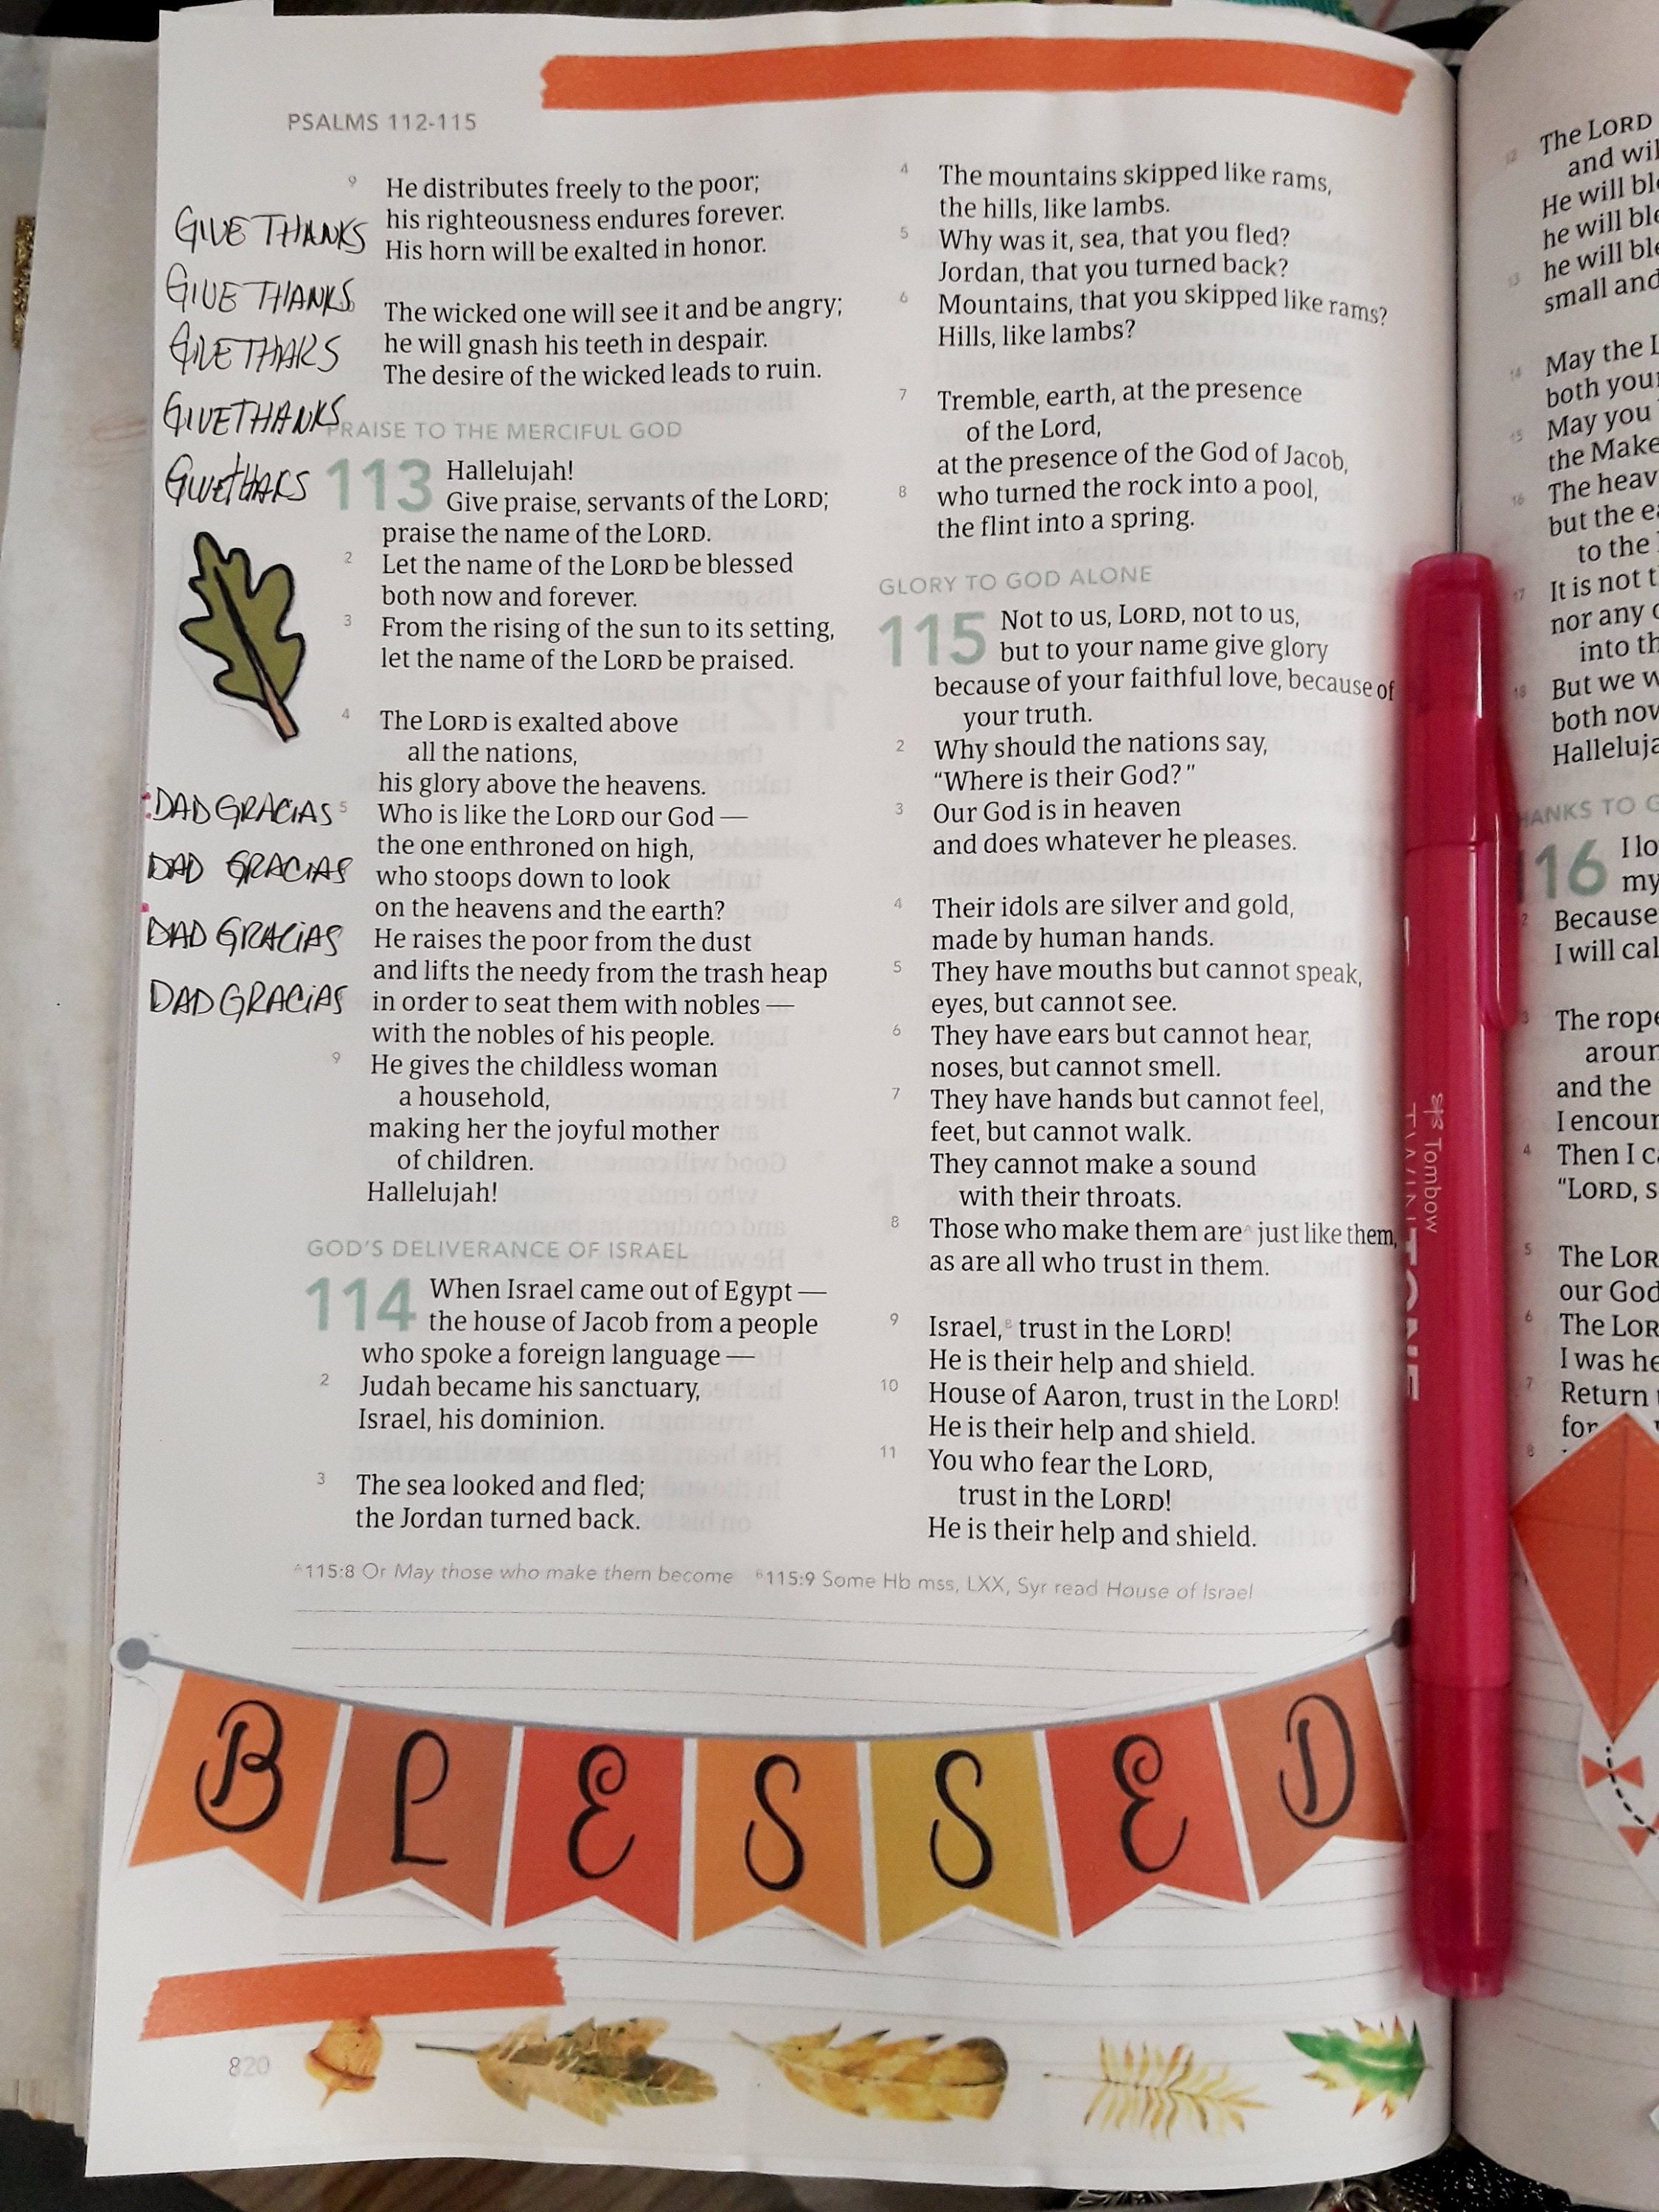 PSALMS 112-115
9 He distributes freely to the poor;
his righteousness endures forever.
His horn will be exalted in honor.
The wicked one will see it and be angry;
he will gnash his teeth in despair.
The desire of the wicked leads to ruin.
GIVE THANKS
GIVE THANKS
GIVETHANKS
PRAISE TO THE MERCIFUL GOD
113 Hallelujah!
Give praise, servants of the LORD;
praise the name of the LORD.
2 Let the name of the LORD be blessed
both now and forever.
3 From the rising of the sun to its setting,
let the name of the LORD be praised.
4 The LORD is exalted above
all the nations,
his glory above the heavens.
5 Who is like the LORD our God —
the one enthroned on high,
who stoops down to look
on the heavens and the earth?
He raises the poor from the dust
and lifts the needy from the trash heap
in order to seat them with nobles —
with the nobles of his people.
9 He gives the childless woman
a household,
making her the joyful mother
of children.
Hallelujah!
DAD GRACiAS
DAD GRACiAS
DAD GRACiAS
DAD GRACiAS
GOD'S DELIVERANCE OF ISRAEL
114 When Israel came out of Egypt —
the house of Jacob from a people
who spoke a foreign language —
2 Judah became his sanctuary,
Israel, his dominion.
3 The sea looked and fled;
the Jordan turned back.
4 The mountains skipped like rams,
the hills, like lambs.
5 Why was it, sea, that you fled?
Jordan, that you turned back?
6 Mountains, that you skipped like rams?
Hills, like lambs?
7 Tremble, earth, at the presence
of the Lord,
at the presence of the God of Jacob,
8 who turned the rock into a pool,
the flint into a spring.
GLORY TO GOD ALONE
115 Not to us, LORD, not to us,
but to your name give glory
because of your faithful love, because of
your truth.
2 Why should the nations say,
"Where is their God?"
3 Our God is in heaven
and does whatever he pleases.
4 Their idols are silver and gold,
made by human hands.
5 They have mouths but cannot speak,
eyes, but cannot see.
6 They have ears but cannot hear,
noses, but cannot smell.
7 They have hands but cannot feel,
feet, but cannot walk.
They cannot make a sound
with their throats.
8 Those who make them are^A just like them,
as are all who trust in them.
9 Israel,^B trust in the LORD!
He is their help and shield.
10 House of Aaron, trust in the LORD!
He is their help and shield.
11 You who fear the LORD,
trust in the LORD!
He is their help and shield.
^A 115:8 Or May those who make them become ^B 115:9 Some Hb mss, LXX, Syr read House of Israel
BLESSED
820
Tombow
12 The LORD
and
He will
he will
13 he will
small and
14 May the
both
15 May you
the
16 The
but the
to the
17 It is not
nor any
into
18 But we
both
116 I
my
2 Because
I will
3 The
and the
I
4 Then I
5 The
our God
6 The
I was
7 Return
for
8